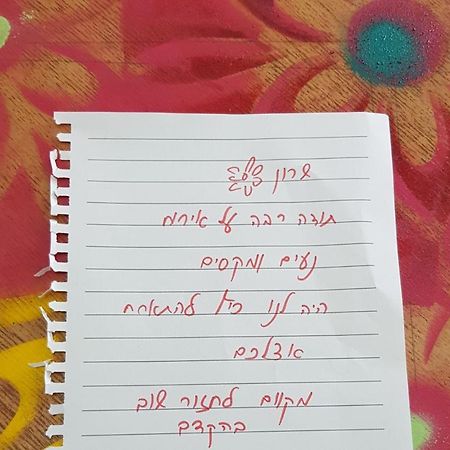 שרון
תודה רבה על אירוח
נעים ומקסים
היה לנו כיף להתארח
אצלכם
מקווים לחזור שוב
בהקדם